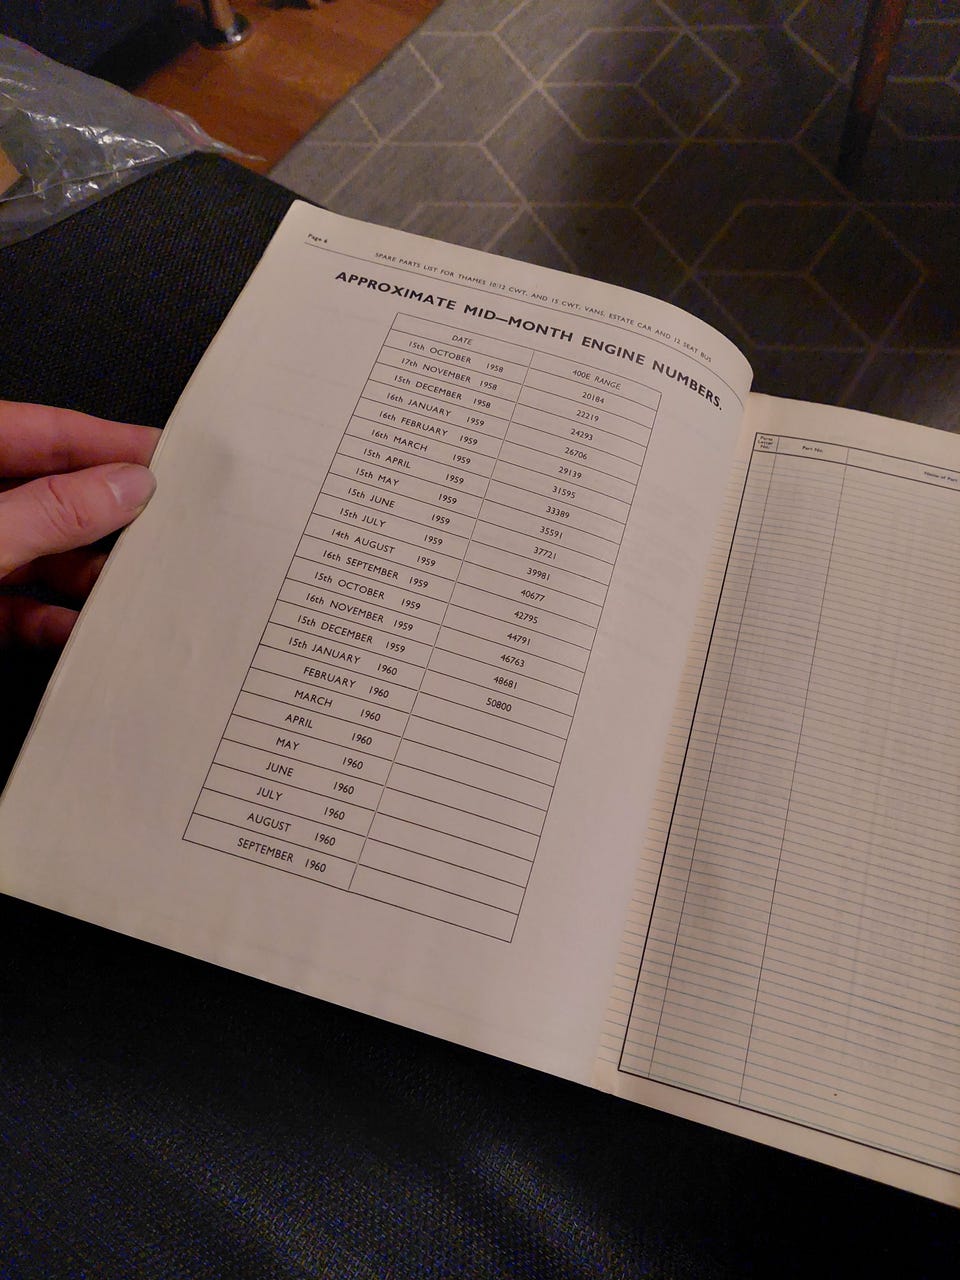 Page 6
SPARE PARTS LIST FOR THAMES 10/12 CWT. AND 15 CWT. VANS, ESTATE CAR AND 12 SEAT BUS
APPROXIMATE MID—MONTH ENGINE NUMBERS.
DATE 400E RANGE
15th OCTOBER 1958 20184
17th NOVEMBER 1958 22219
15th DECEMBER 1958 24293
16th JANUARY 1959 26706
16th FEBRUARY 1959 29139
16th MARCH 1959 31595
15th APRIL 1959 33389
15th MAY 1959 35591
15th JUNE 1959 37721
15th JULY 1959 39981
14th AUGUST 1959 40677
16th SEPTEMBER 1959 42795
15th OCTOBER 1959 44791
16th NOVEMBER 1959 46763
15th DECEMBER 1959 48681
15th JANUARY 1960 50800
FEBRUARY 1960
MARCH 1960
APRIL 1960
MAY 1960
JUNE 1960
JULY 1960
AUGUST 1960
SEPTEMBER 1960
Part No.
Name of Part